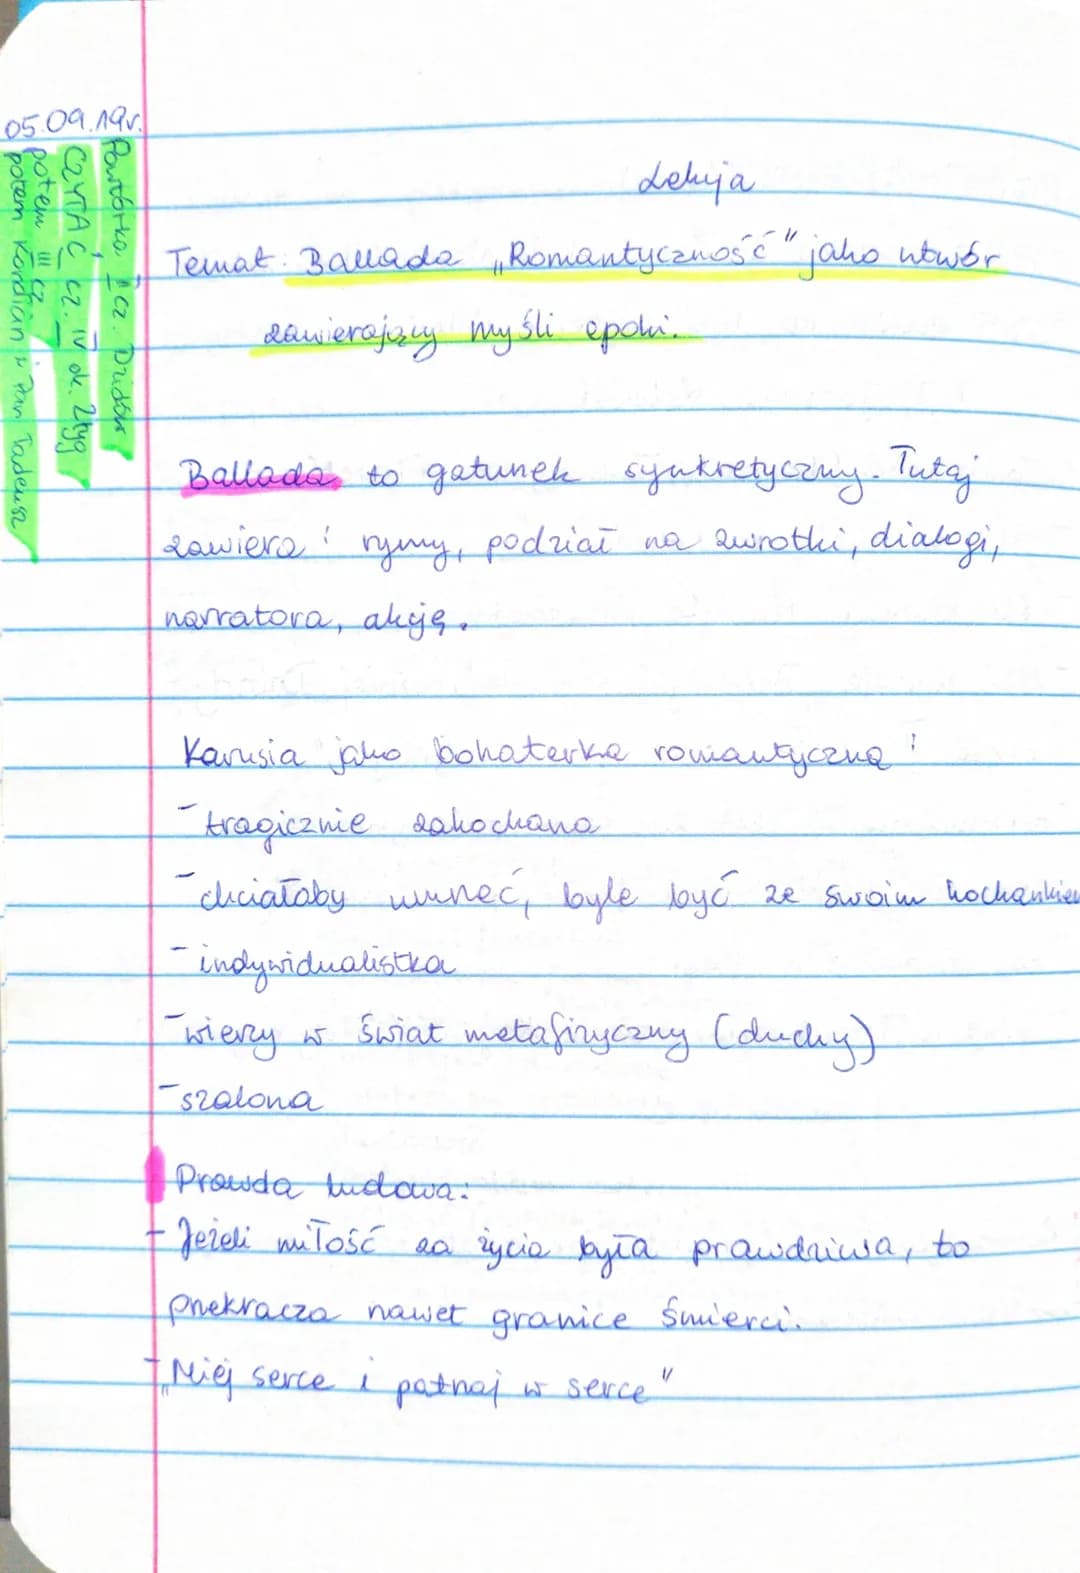 05.09.19r.
Powtórka I cz. Dziadów
CZYTAĆ cz. IV ok. 2tyg
potem III cz
potem Kordian i Pan Tadeusz
Lekcja
Temat: Ballada „Romantyczność" jako utwór
zawierający myśli epoki.
Ballada to gatunek synkretyczny. Tutaj
zawiera: rymy, podział na zwrotki, dialogi,
narratora, akcję.
Karusia jako bohaterka romantyczna:
- tragicznie zakochana
- chciałaby umrzeć, byle być ze swoim kochankiem
- indywidualistka
- wierzy w świat metafizyczny (duchy)
- szalona
Prawda ludowa:
- Jeżeli miłość za życia była prawdziwa, to
przekracza nawet granice śmierci.
- „Miej serce i patrzaj w serce"